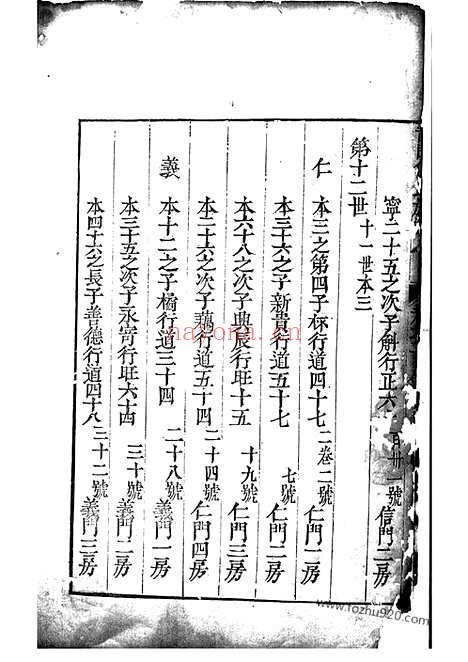 寧二十五之次子斛行正六 百卅一號 信門二房
第十二世 十一世本三
仁 本三之第四子森行道四十七 二卷二號 仁門一房
本三十六之子新貴行道五十七 七號 仁門二房
本六十八之次子典良行旺十五 十九號 仁門三房
本二十六之次子藕行道五十四 二十四號 仁門四房
義 本十二之子橘行道三十四 二十八號 義門一房
本三十五之次子永寄行旺六十四 三十號 義門二房
本四十六之長子善德行道四十八 三十二號 義門三房
nayona.cn
www.fozhu920.com